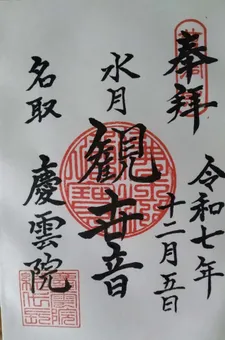 奉拝
令和七年
十二月五日
水月
觀世音
名取
慶雲院